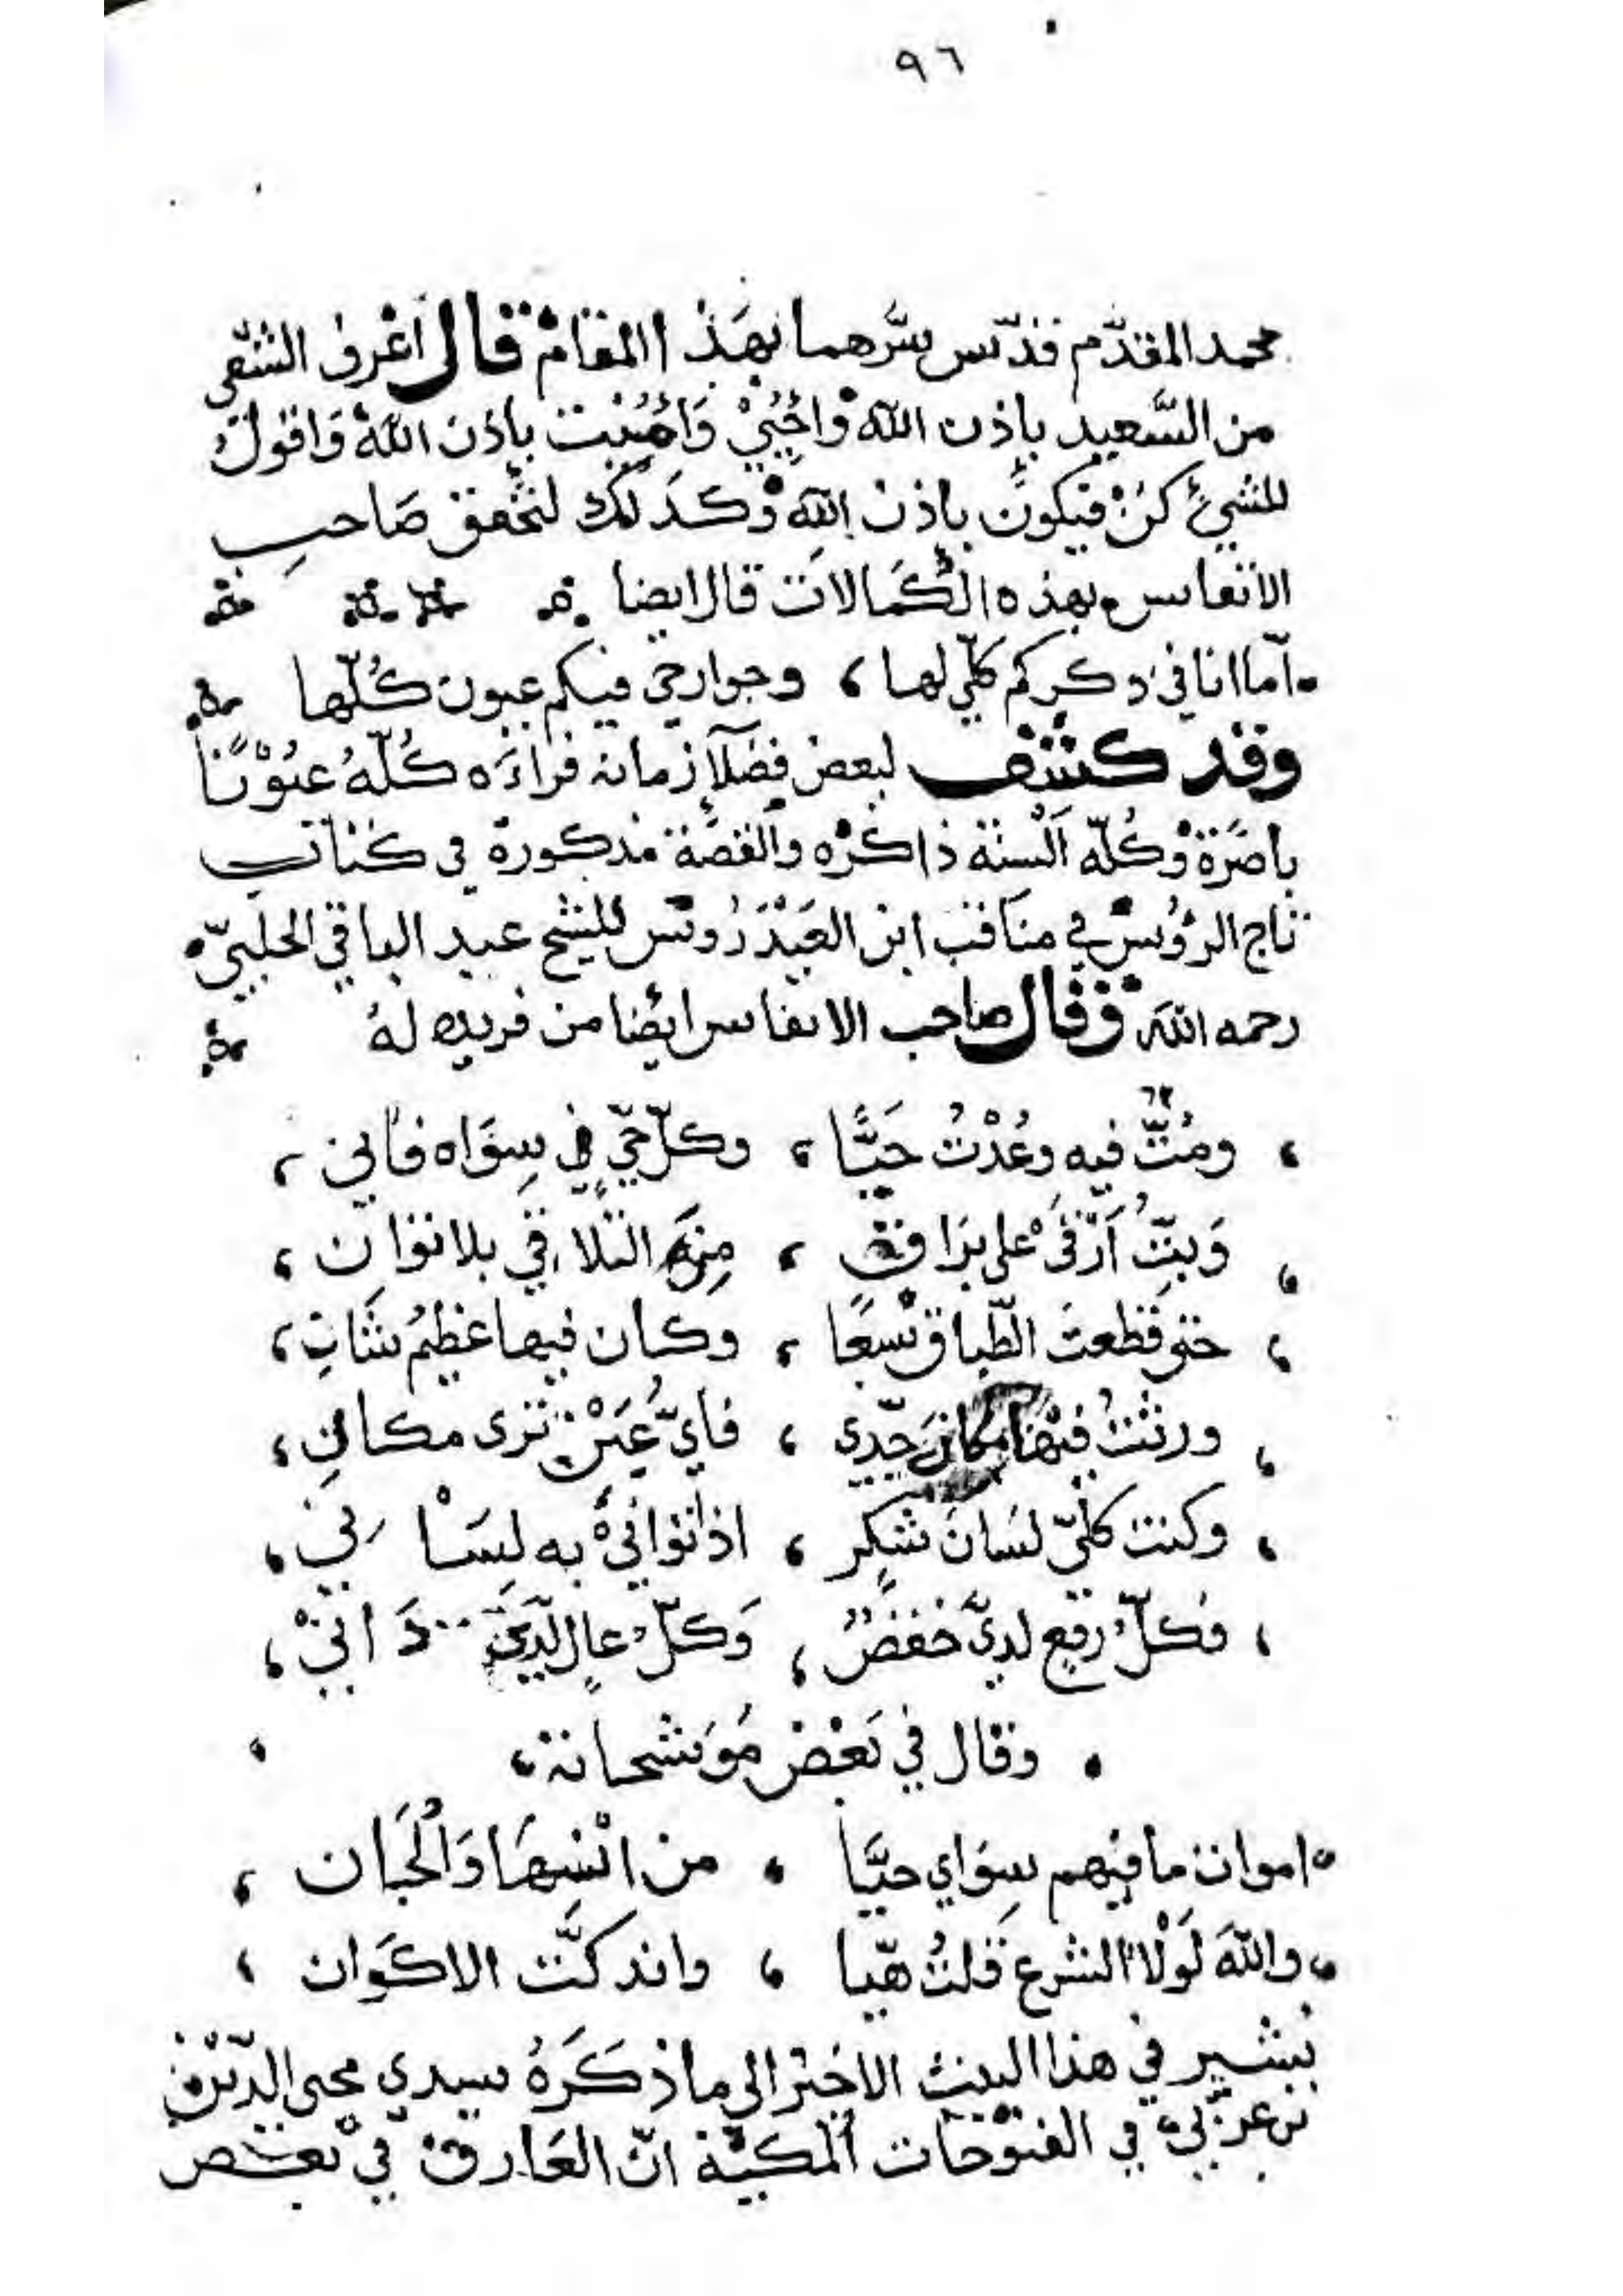 ٩٦
محمد المقدّم قدّس سرّهما بهذا المقام قال أعرف الشقي
من السَّعيد بإذن الله وأحيي وَأُميت بإذن الله وَاقول
للشيء كن فيكون بإذن الله وكذلك لتحقق صَاحب
الانفاس بهذه الكمالات قال ايضا
امّا انا في ذكركم كلّي لها ، وجوارحي فيكم عيون كُلّها
وقد كشف لبعض فضلآء زمانه فراءَه كُلّهُ عيُوْنًا
باصَرة وَكُلّه اَلْسنة ذاكره والقصّة مذكورة في كتاب
تاج الرؤس في مناقب ابن العَيْدَرُوس للشيخ عبد الباقي الحلبيّ
رحمه الله وَقال صاحب الانفاس ايضا من فريده لهُ
، ومُتُّ فيه وعُدْتُ حَيًّا ، وكلّ حيّ في سِوَاه فاني ،
، وَبِتّ اَرْقَى على بَرَاق ، مِنَ التلاقي بلا توان ،
، حتى قطعت الطّباق سَبعًا ، وكان فيها عَظِيمُ شَاني ،
، ورثتُ فيْها مكان جَدّي ، فايّ عَيْن ترى مكاني ،
، وكنت كلّي لسَان شكر ، اذا توانى به لِسَاني ،
، فكلّ رفع لديّ خَفضٌ ، وَكلّ عالٍ لَدَيَّ دَاني ،
وقال في بَعْض مُوَشحاته ،
اموات ما فيهم سِوَاي حيَّا ، من انْسِهَا وَالْجَان ،
والله لَوْلا الشرع قلتُ هَيّا ، واندكَّت الاكوَان ،
يُشير في هذا البيت الاخير الى ما ذكَرَهُ سيدي محيى الدّين
بن عربي في الفتوْحات المكيّة انّ العَارف في بعض